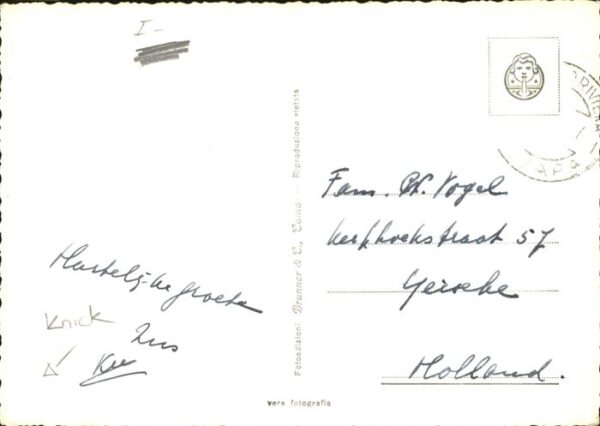 I-
Hartelijke groeten
Knick
Zus
Kee
Fotoedizioni Brunner & C., Como - Riproduzione vietata
vera fotografia
Fam. W. Vogel
Kerkhoekstraat 57
Yerseke
Holland.